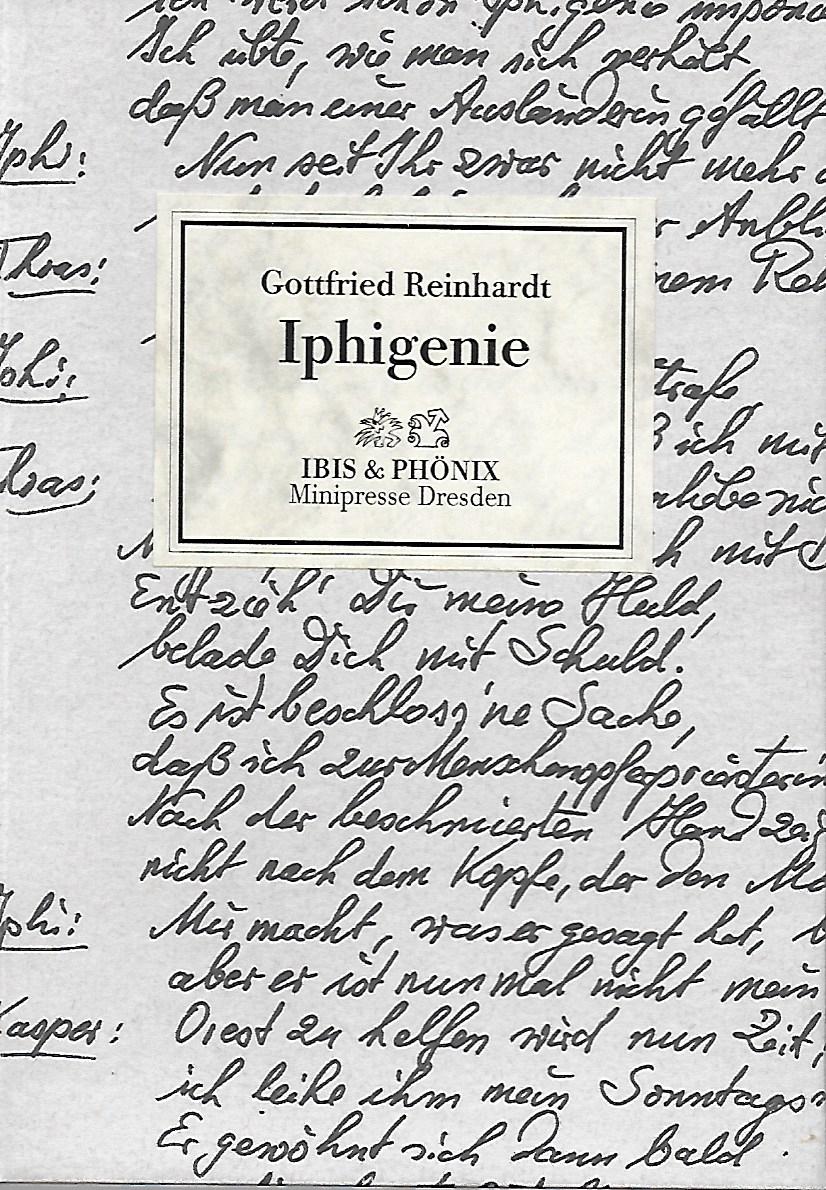 ich übte, wie man sich verhält,
daß man einer Ausländerin gefällt
Iph: Nun seit Ihr zwar nicht mehr
Anbli
Thoas: nem Re
Iphi: trafe,
ß ich mit
Thoas:
ch mit
Entzieh' Dir meine Huld,
belade Dich mit Schuld!
Es ist beschloss'ne Sache,
daß ich zur Menschenopferpriesterin
Nach der beschmierten Hand
nicht nach dem Kopfe, der den
Iphi: Mir macht, was er gesagt hat,
aber er ist nun mal nicht mein
Kasper: Orest zu helfen wird nun Zeit,
ich leihe ihm mein Sonntags
Er gewöhnt sich dann bald
Gottfried Reinhardt
Iphigenie
IBIS & PHÖNIX
Minipresse Dresden